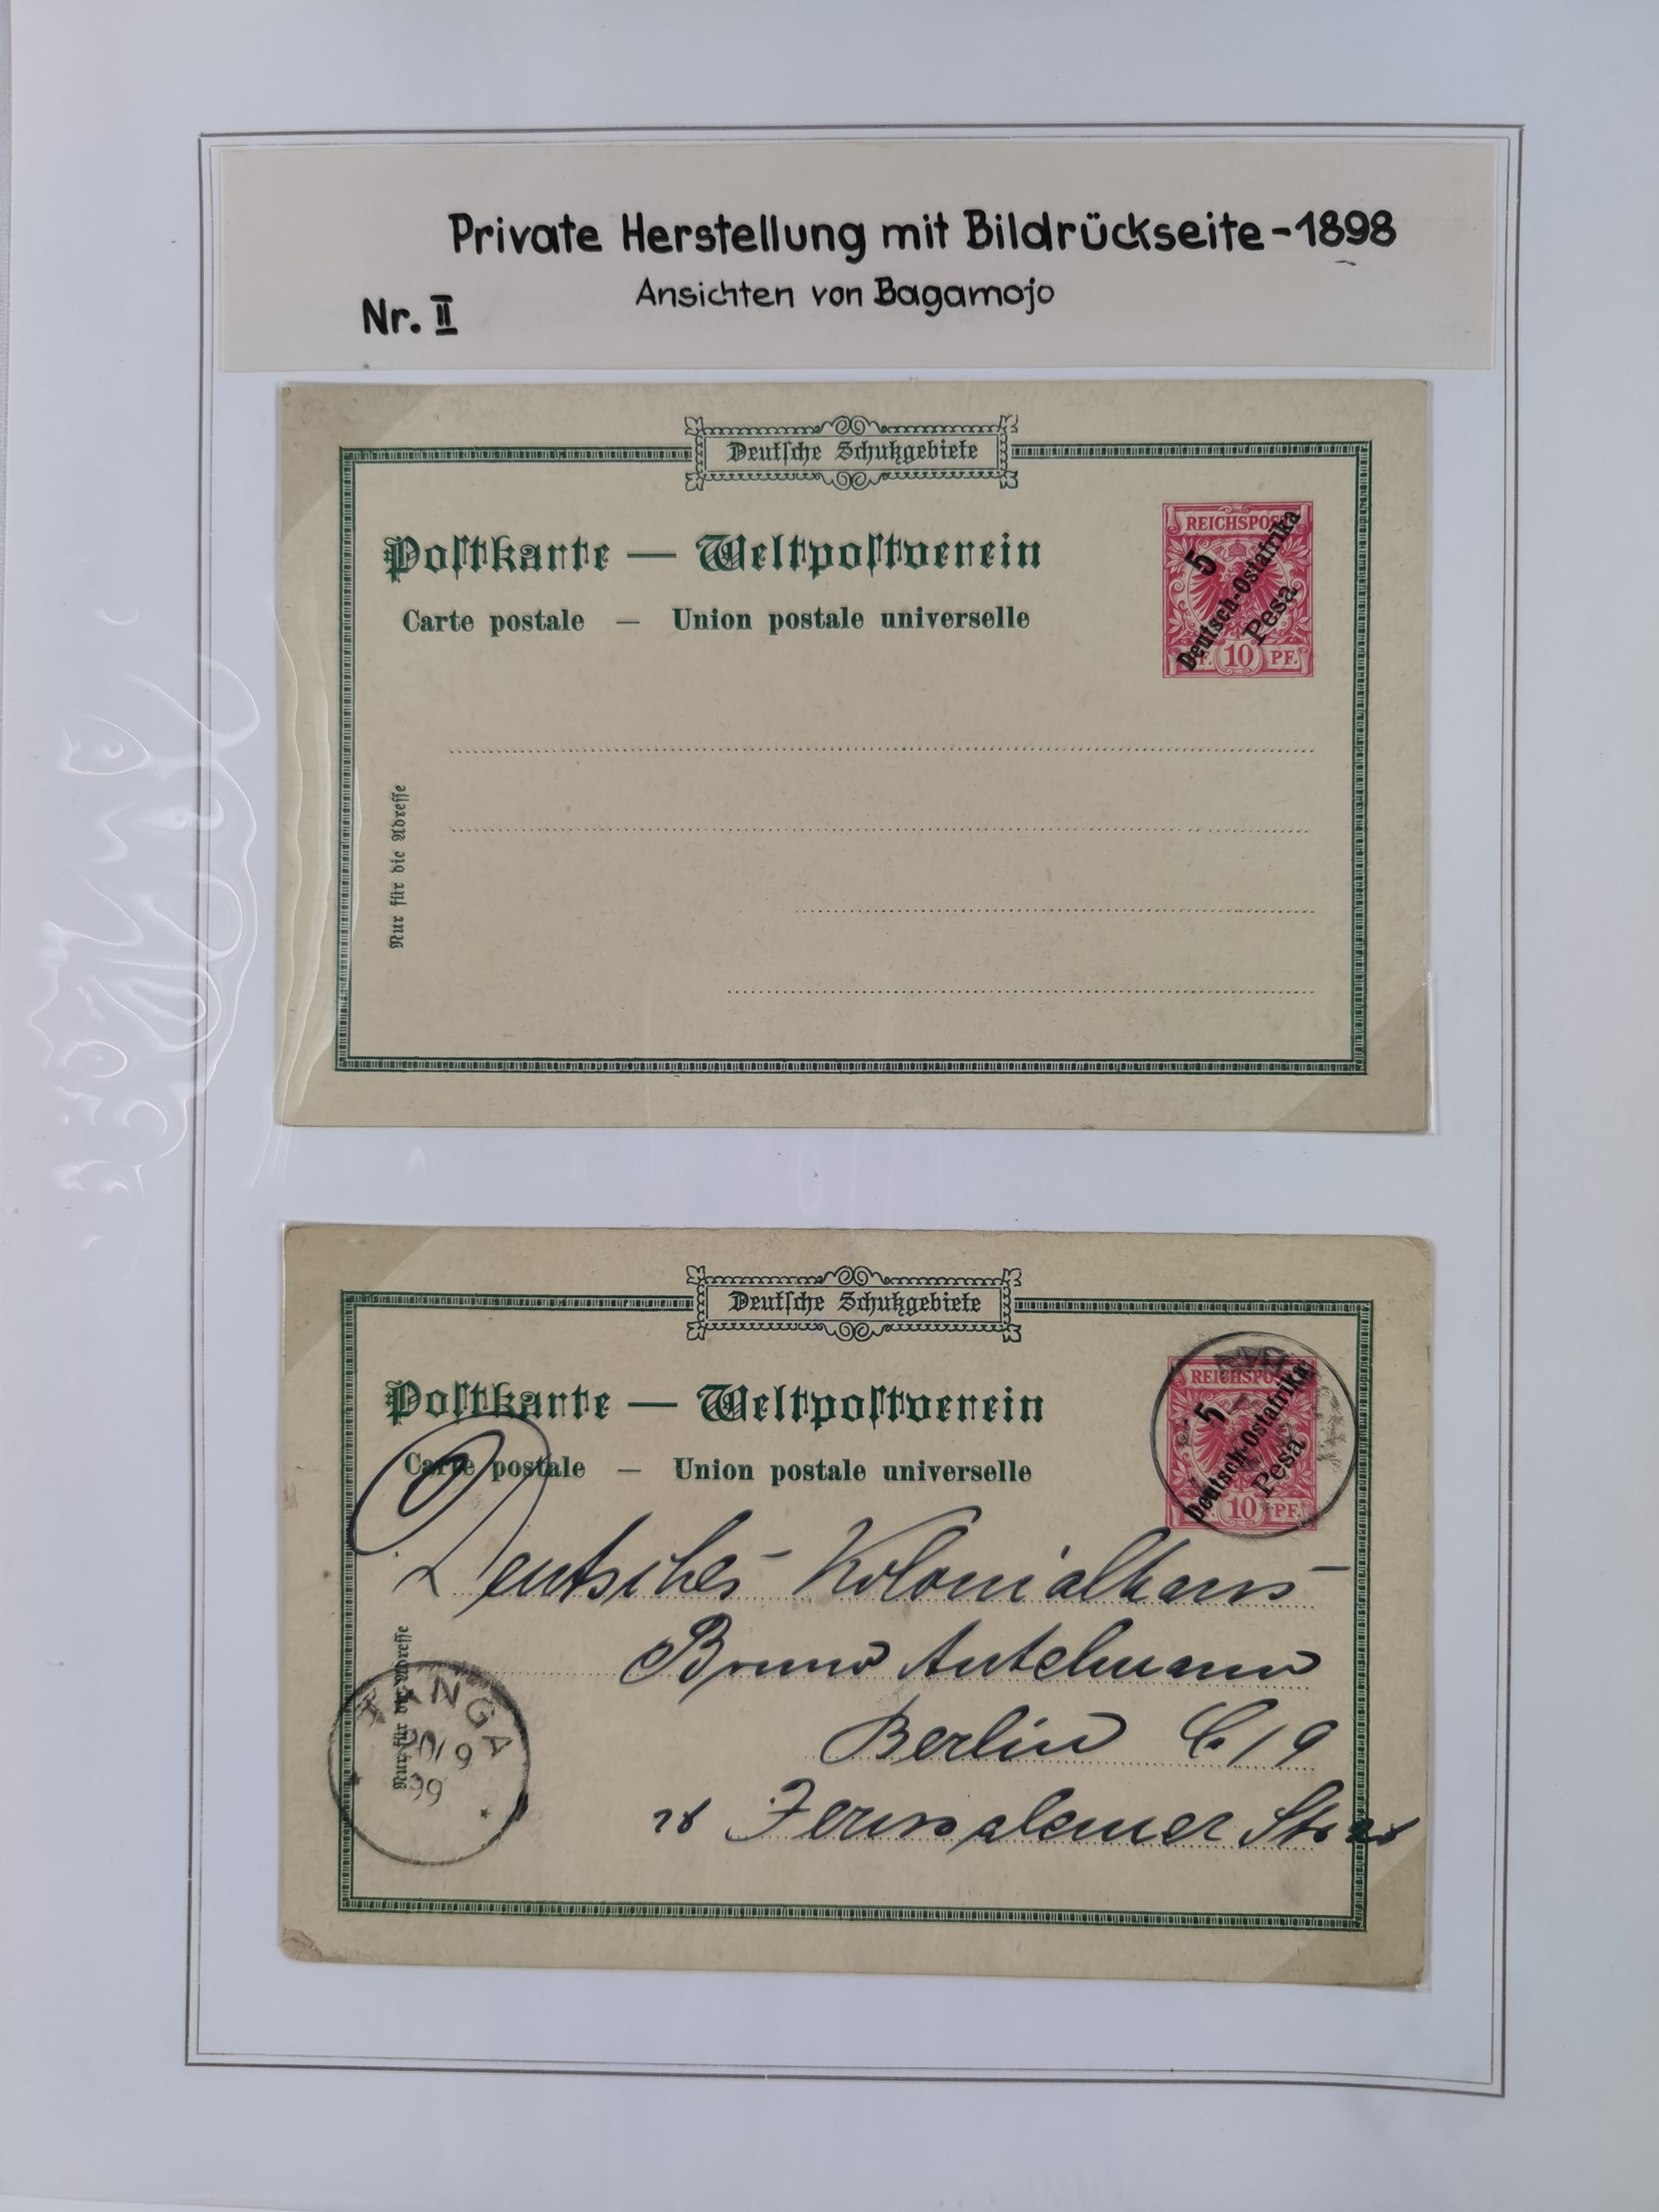 Private Herstellung mit Bildrückseite - 1898
Ansichten von Bagamojo
Nr. II
Deutsche Schutzgebiete
Postkarte — Weltpostverein
Carte postale — Union postale universelle
REICHSPOST
5
Deutsch-Ostafrika
Pesa
10 PF.
Nur für die Adresse
Deutsche Schutzgebiete
Postkarte — Weltpostverein
Carte postale — Union postale universelle
REICHSPOST
5
Deutsch-Ostafrika
Pesa
10 PF.
Deutsches Kolonialhaus
Bruno Antelmann
Berlin C. 19
28 Jerusalemer Str. 28
Nur für die Adresse
TANGA
20/9
99